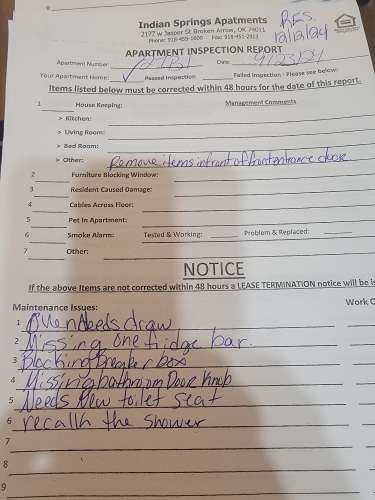 Indian Springs Apatments
2177 w Jasper St Broken Arrow, OK 74011
Phone: 918-455-1600 Fax: 918-451-2913
RES.
12/12/24
APARTMENT INSPECTION REPORT
Apartment Number Date: 4/23/24
Your Apartment Name: Passed Inspection Failed Inspection - Please see below:
Items listed below must be corrected within 48 hours for the date of this report.
1 House Keeping: Management Comments
> Kitchen:
> Living Room:
> Bed Room:
> Other: Remove items infront of front entrance door
2 Furniture Blocking Window:
3 Resident Caused Damage:
4 Cables Across Floor:
5 Pet In Apartment:
6 Smoke Alarm: Tested & Working: Problem & Replaced:
7 Other:
NOTICE
If the above Items are not corrected within 48 hours a LEASE TERMINATION notice will be is
Maintenance Issues: Work O
1 Oven Needs draw
2 Missing one fridge bar.
3 Blocking Breaker box
4 Missing bathroom Door Knob
5 Needs New toilet seat
6 recalk the shower
7
8
9